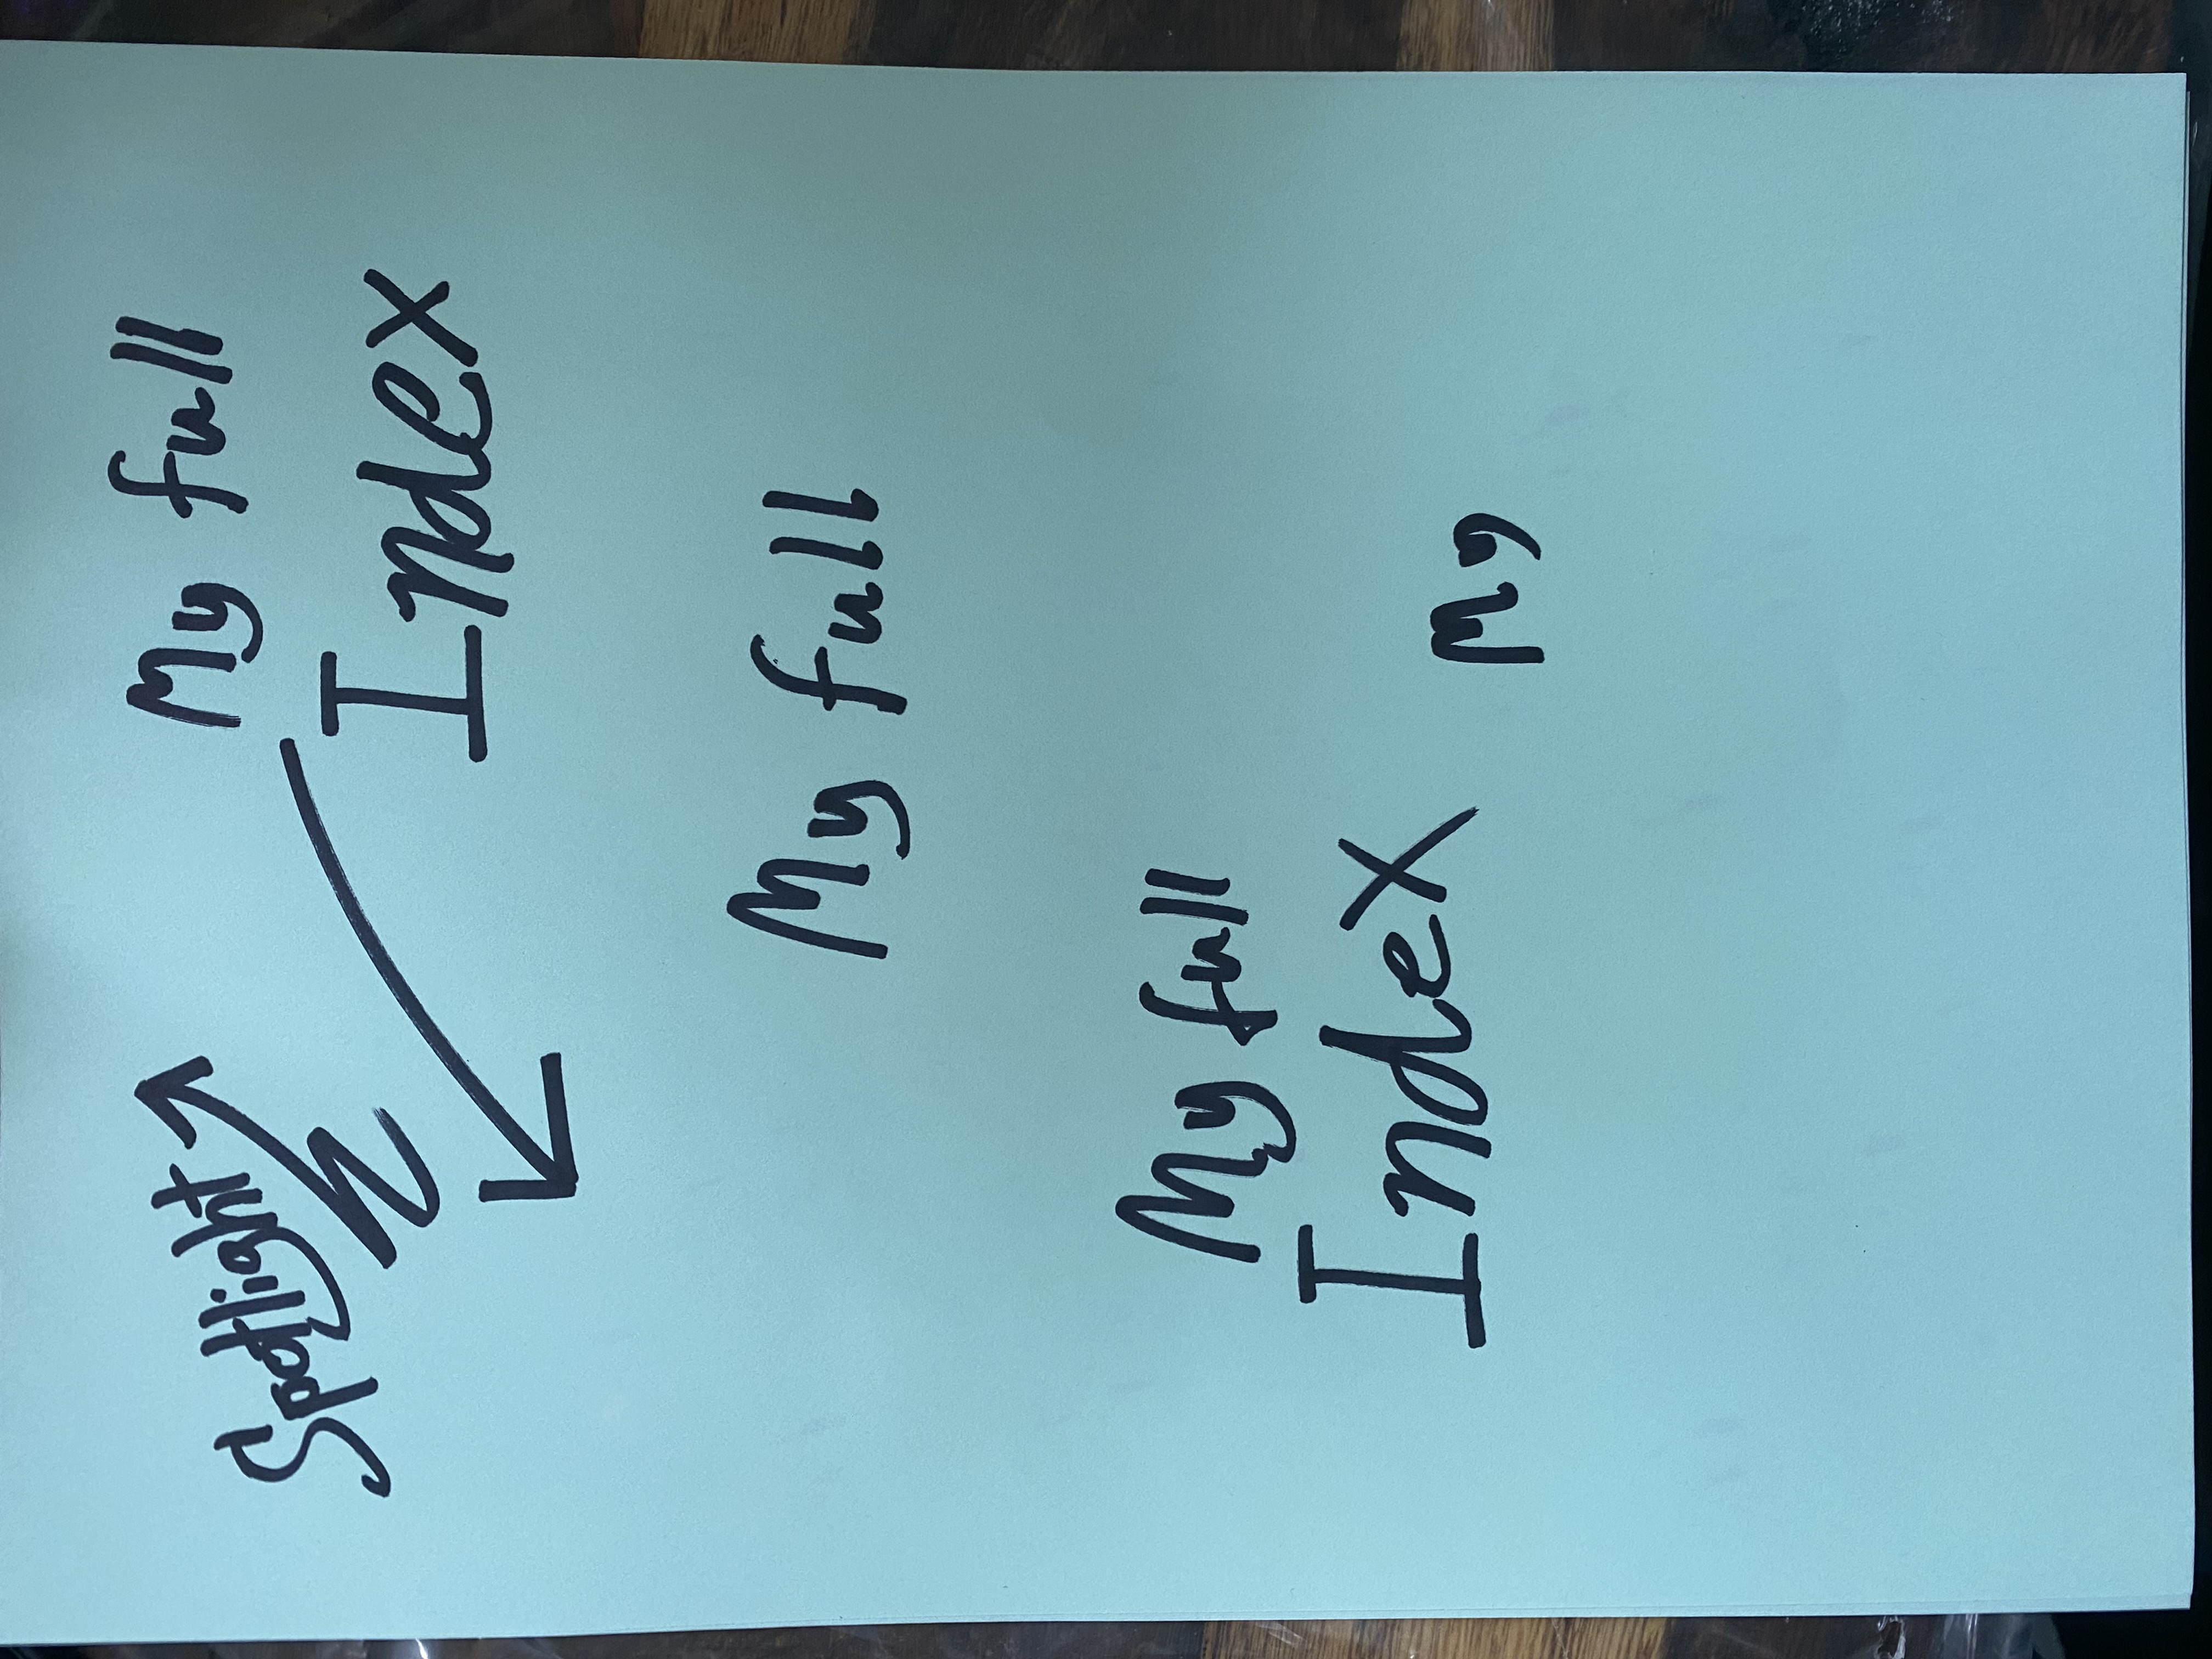 Spotlight
My full
Index
My full
My full
Index
My